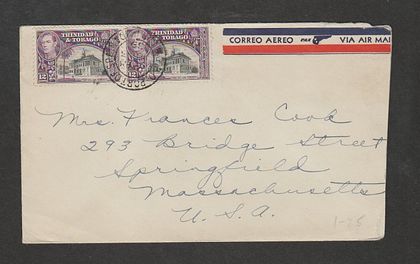 TRINIDAD & TOBAGO TRINIDAD & TOBAGO
12 12
CORREO AEREO PAR VIA AIR MAI
Mrs. Frances Cook
293 Bridge Street
Springfield
Massachusetts
U. S. A.
1-25